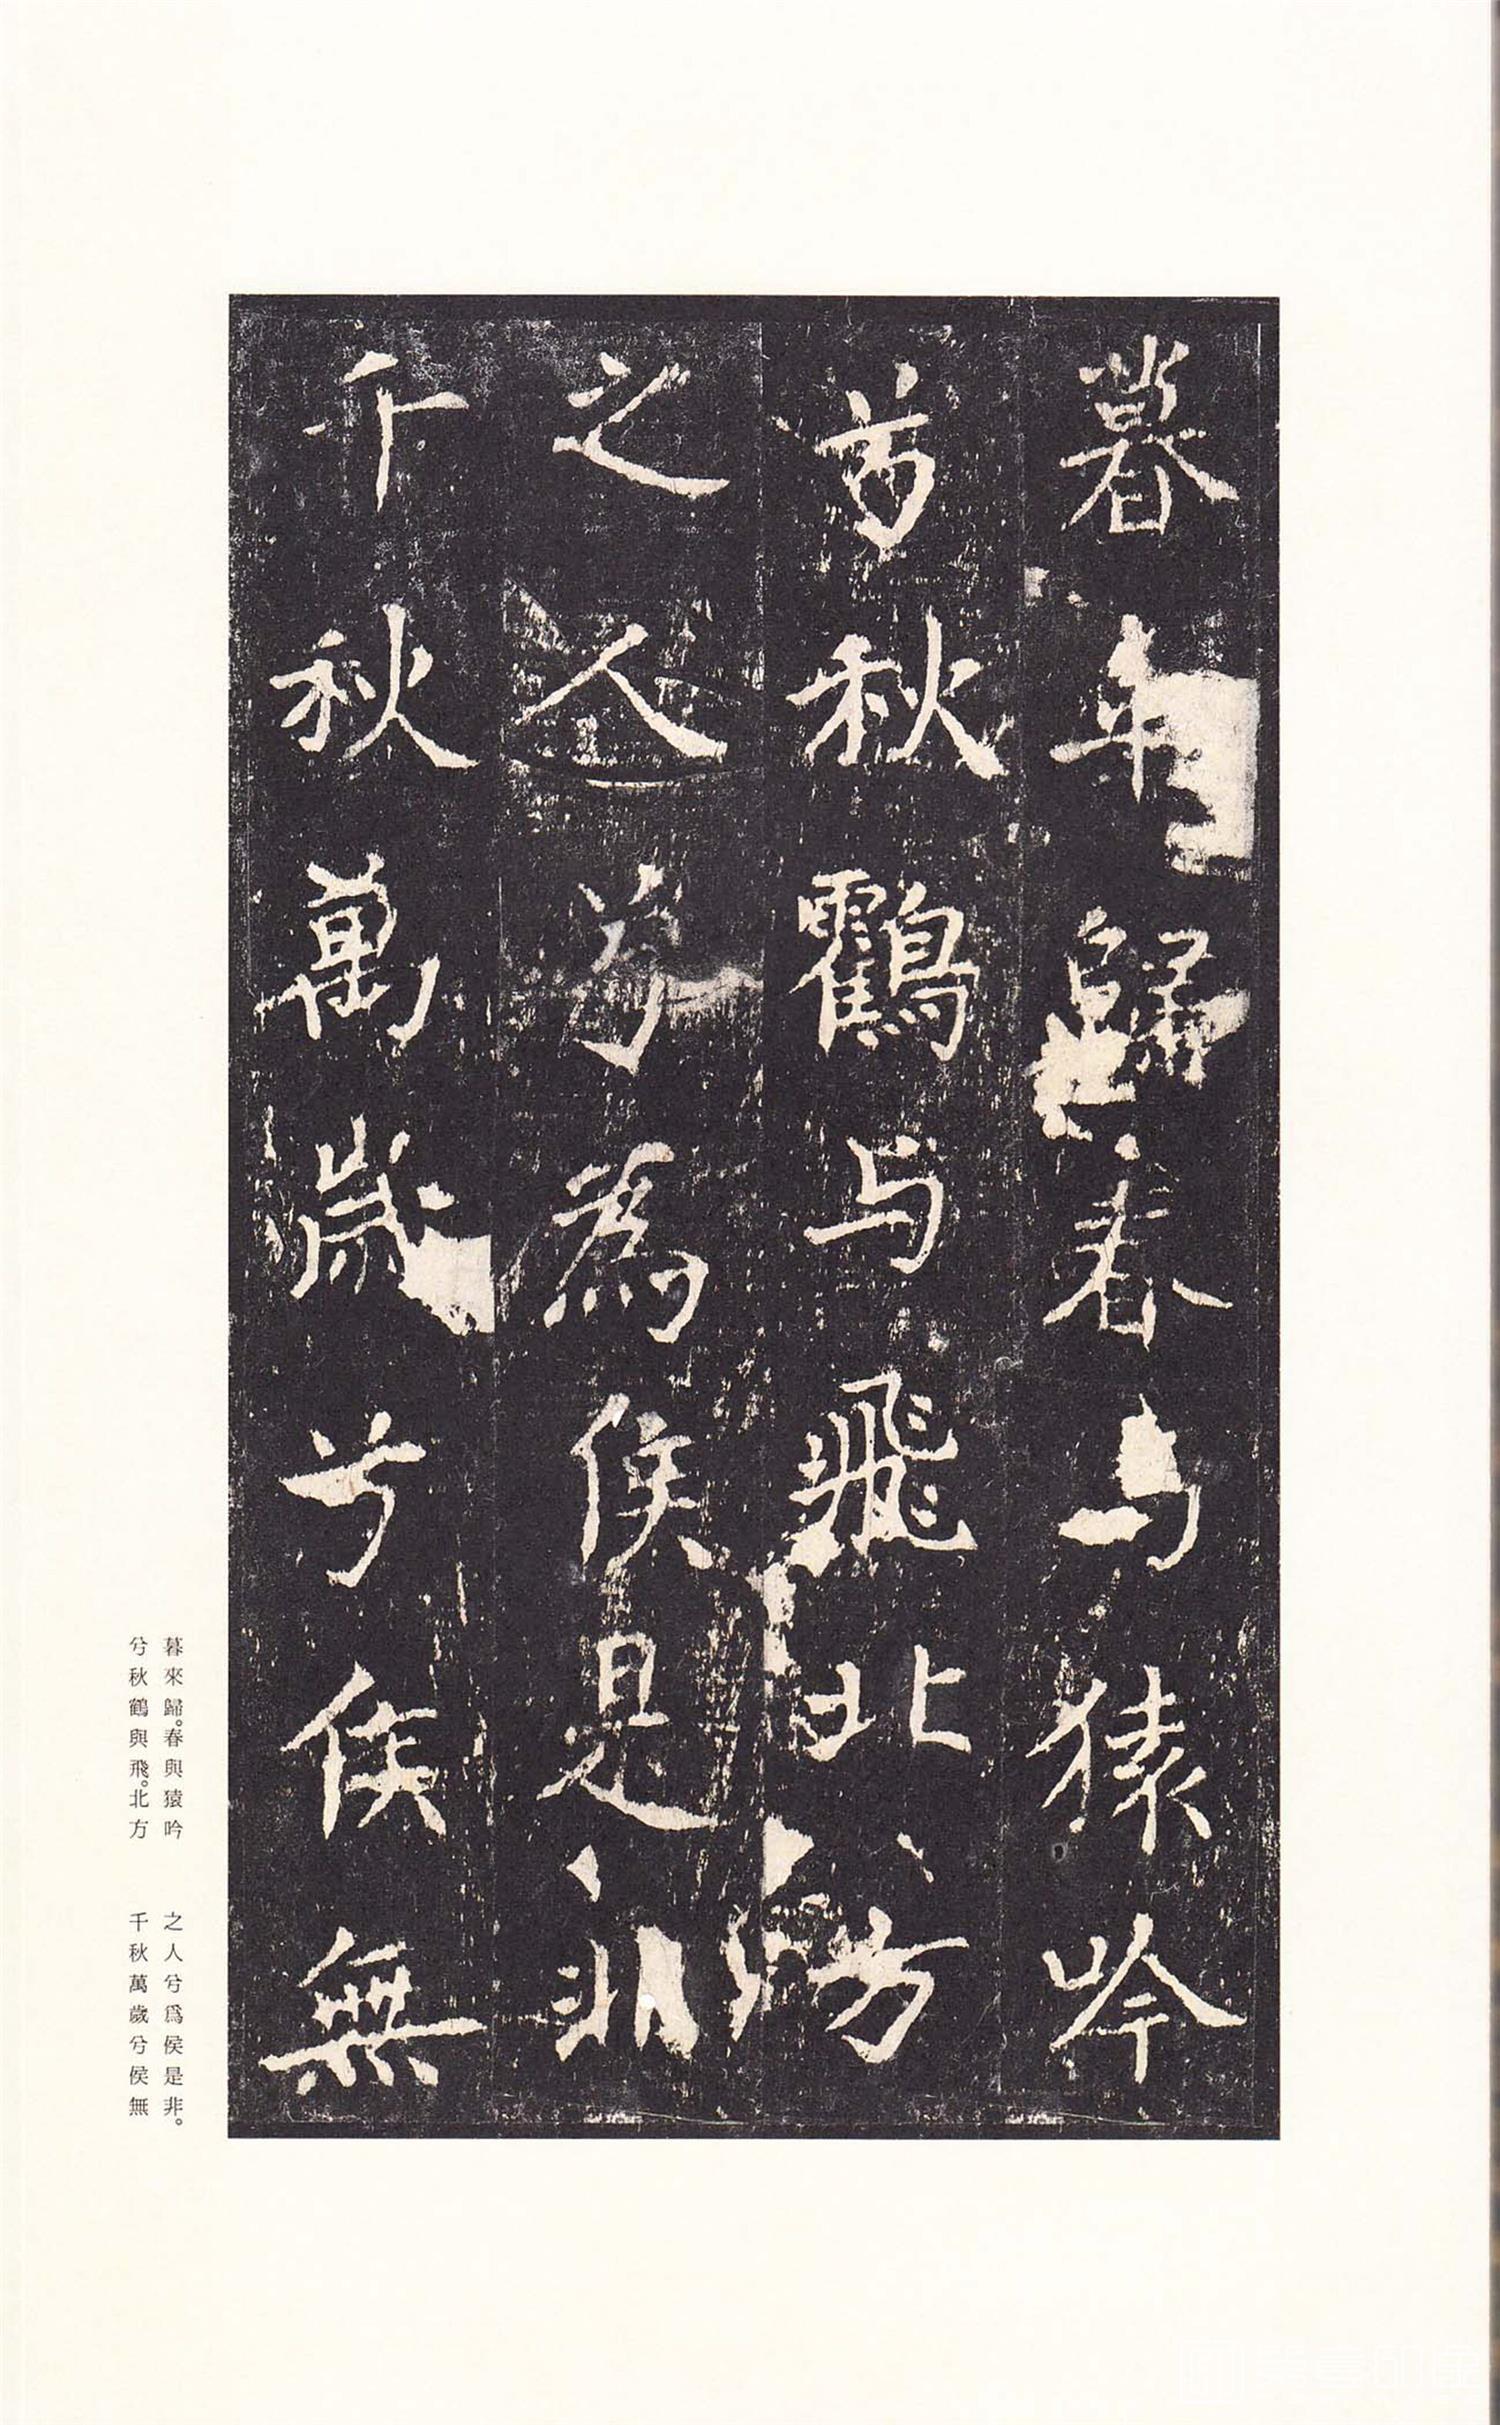 暮来歸春与猿吟
兮秋鶴与飛北方
之人兮為侯是非
千秋萬歲兮侯無
暮來歸。春與猿吟
兮秋鶴與飛。北方
之人兮爲侯是非。
千秋萬歲兮侯無